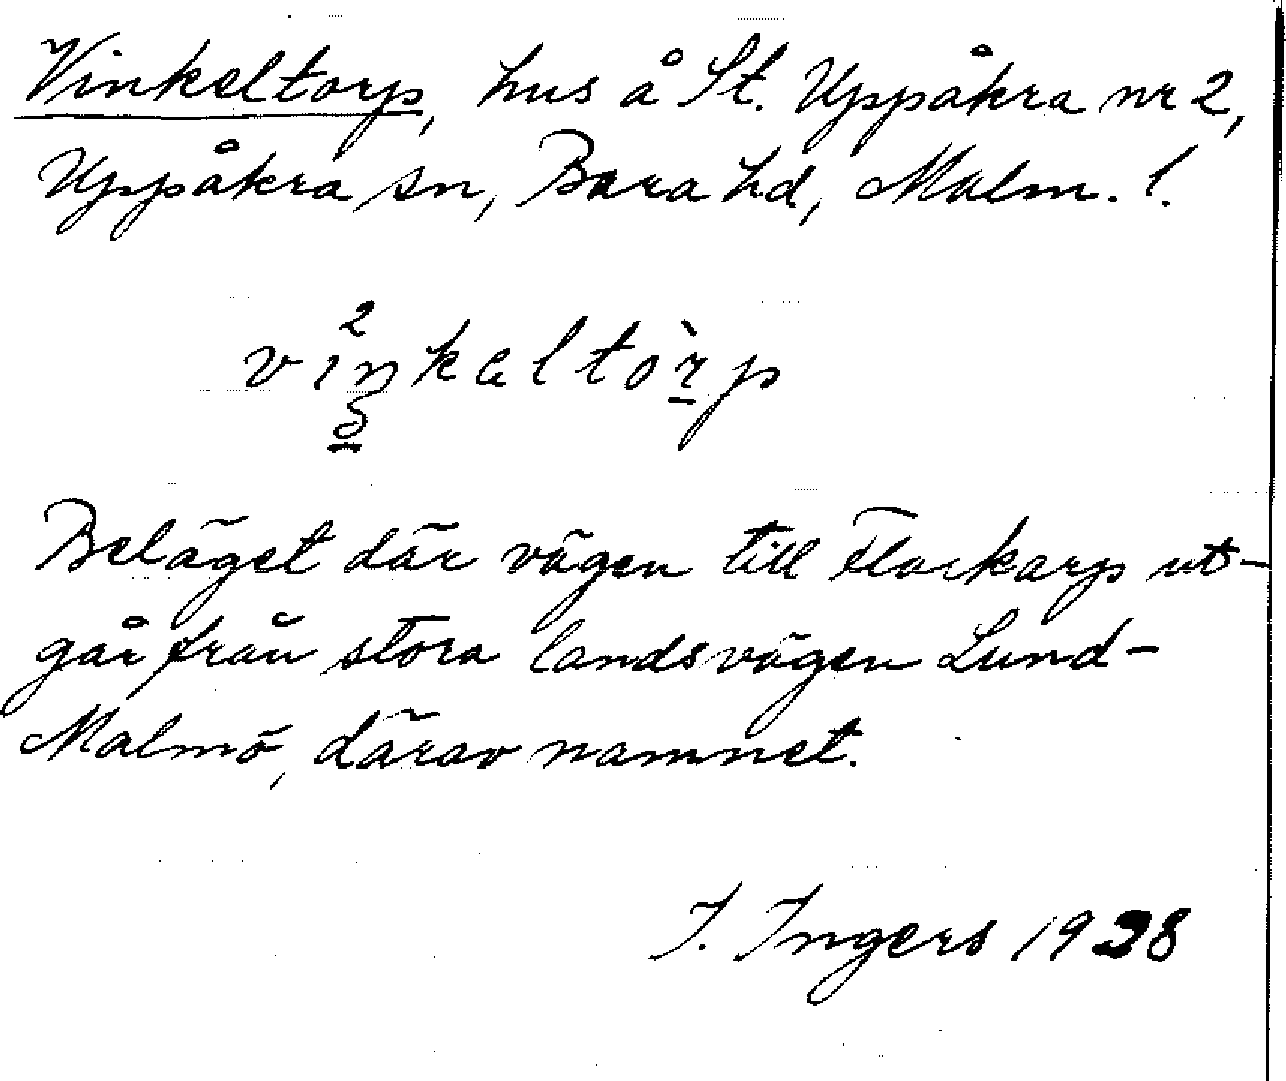 Vinkeltorp, hus å St. Uppåkra nr 2,
Uppåkra sn, Bara hd, Malm. l.
Beläget där vägen till Flackarp ut-
går från stora landsvägen Lund-
Malmö, därav namnet.
I. Ingers 1928